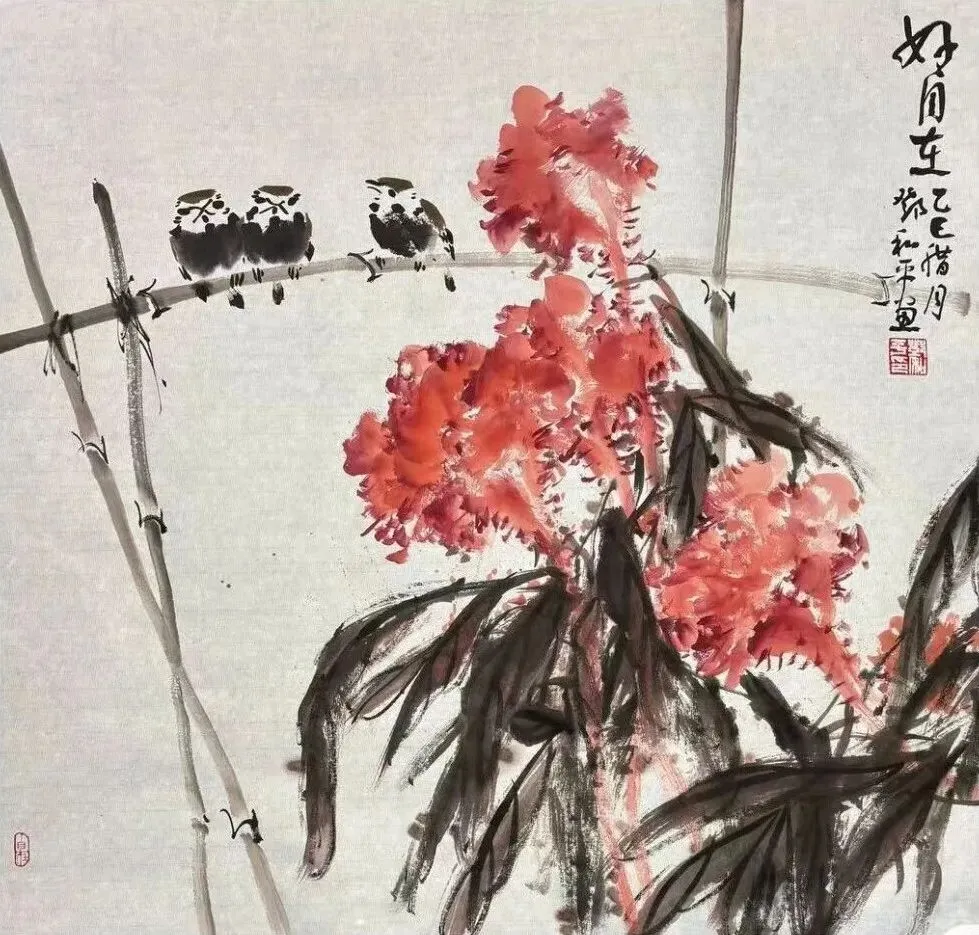 好自在
乙巳腊月
邓和平画